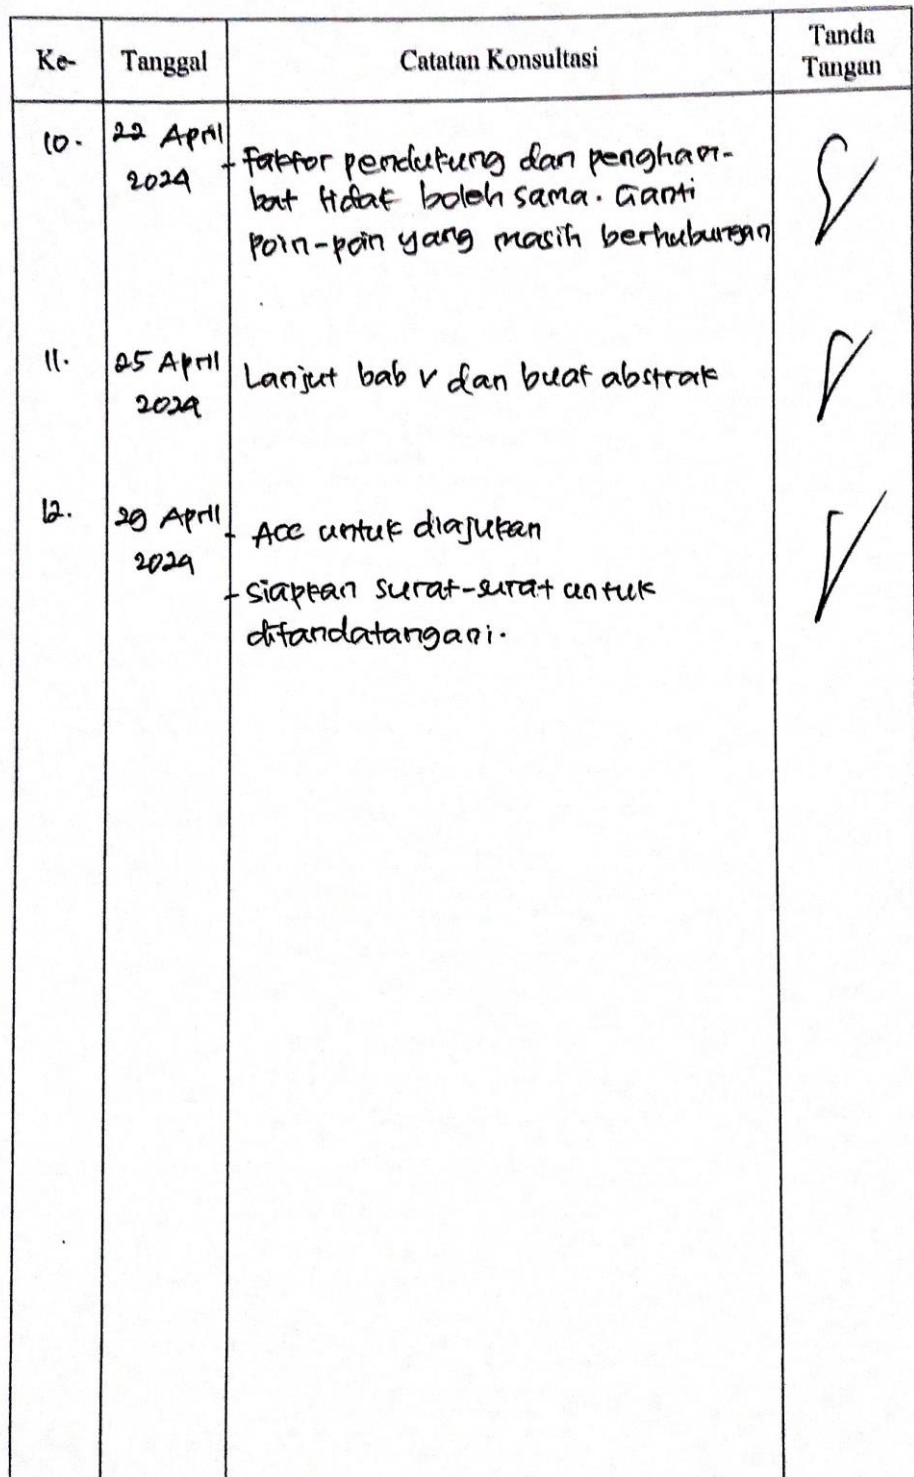 Ke- Tanggal Catatan Konsultasi Tanda Tangan
10. 22 April 2024
- faktor pendukung dan pengham-
bat tidak boleh sama. Ganti
poin-poin yang masih berhubungan
11. 25 April 2024
Lanjut bab V dan buat abstrak
12. 29 April 2024
- Acc untuk diajukan
- siapkan surat-surat untuk
ditandatangani.